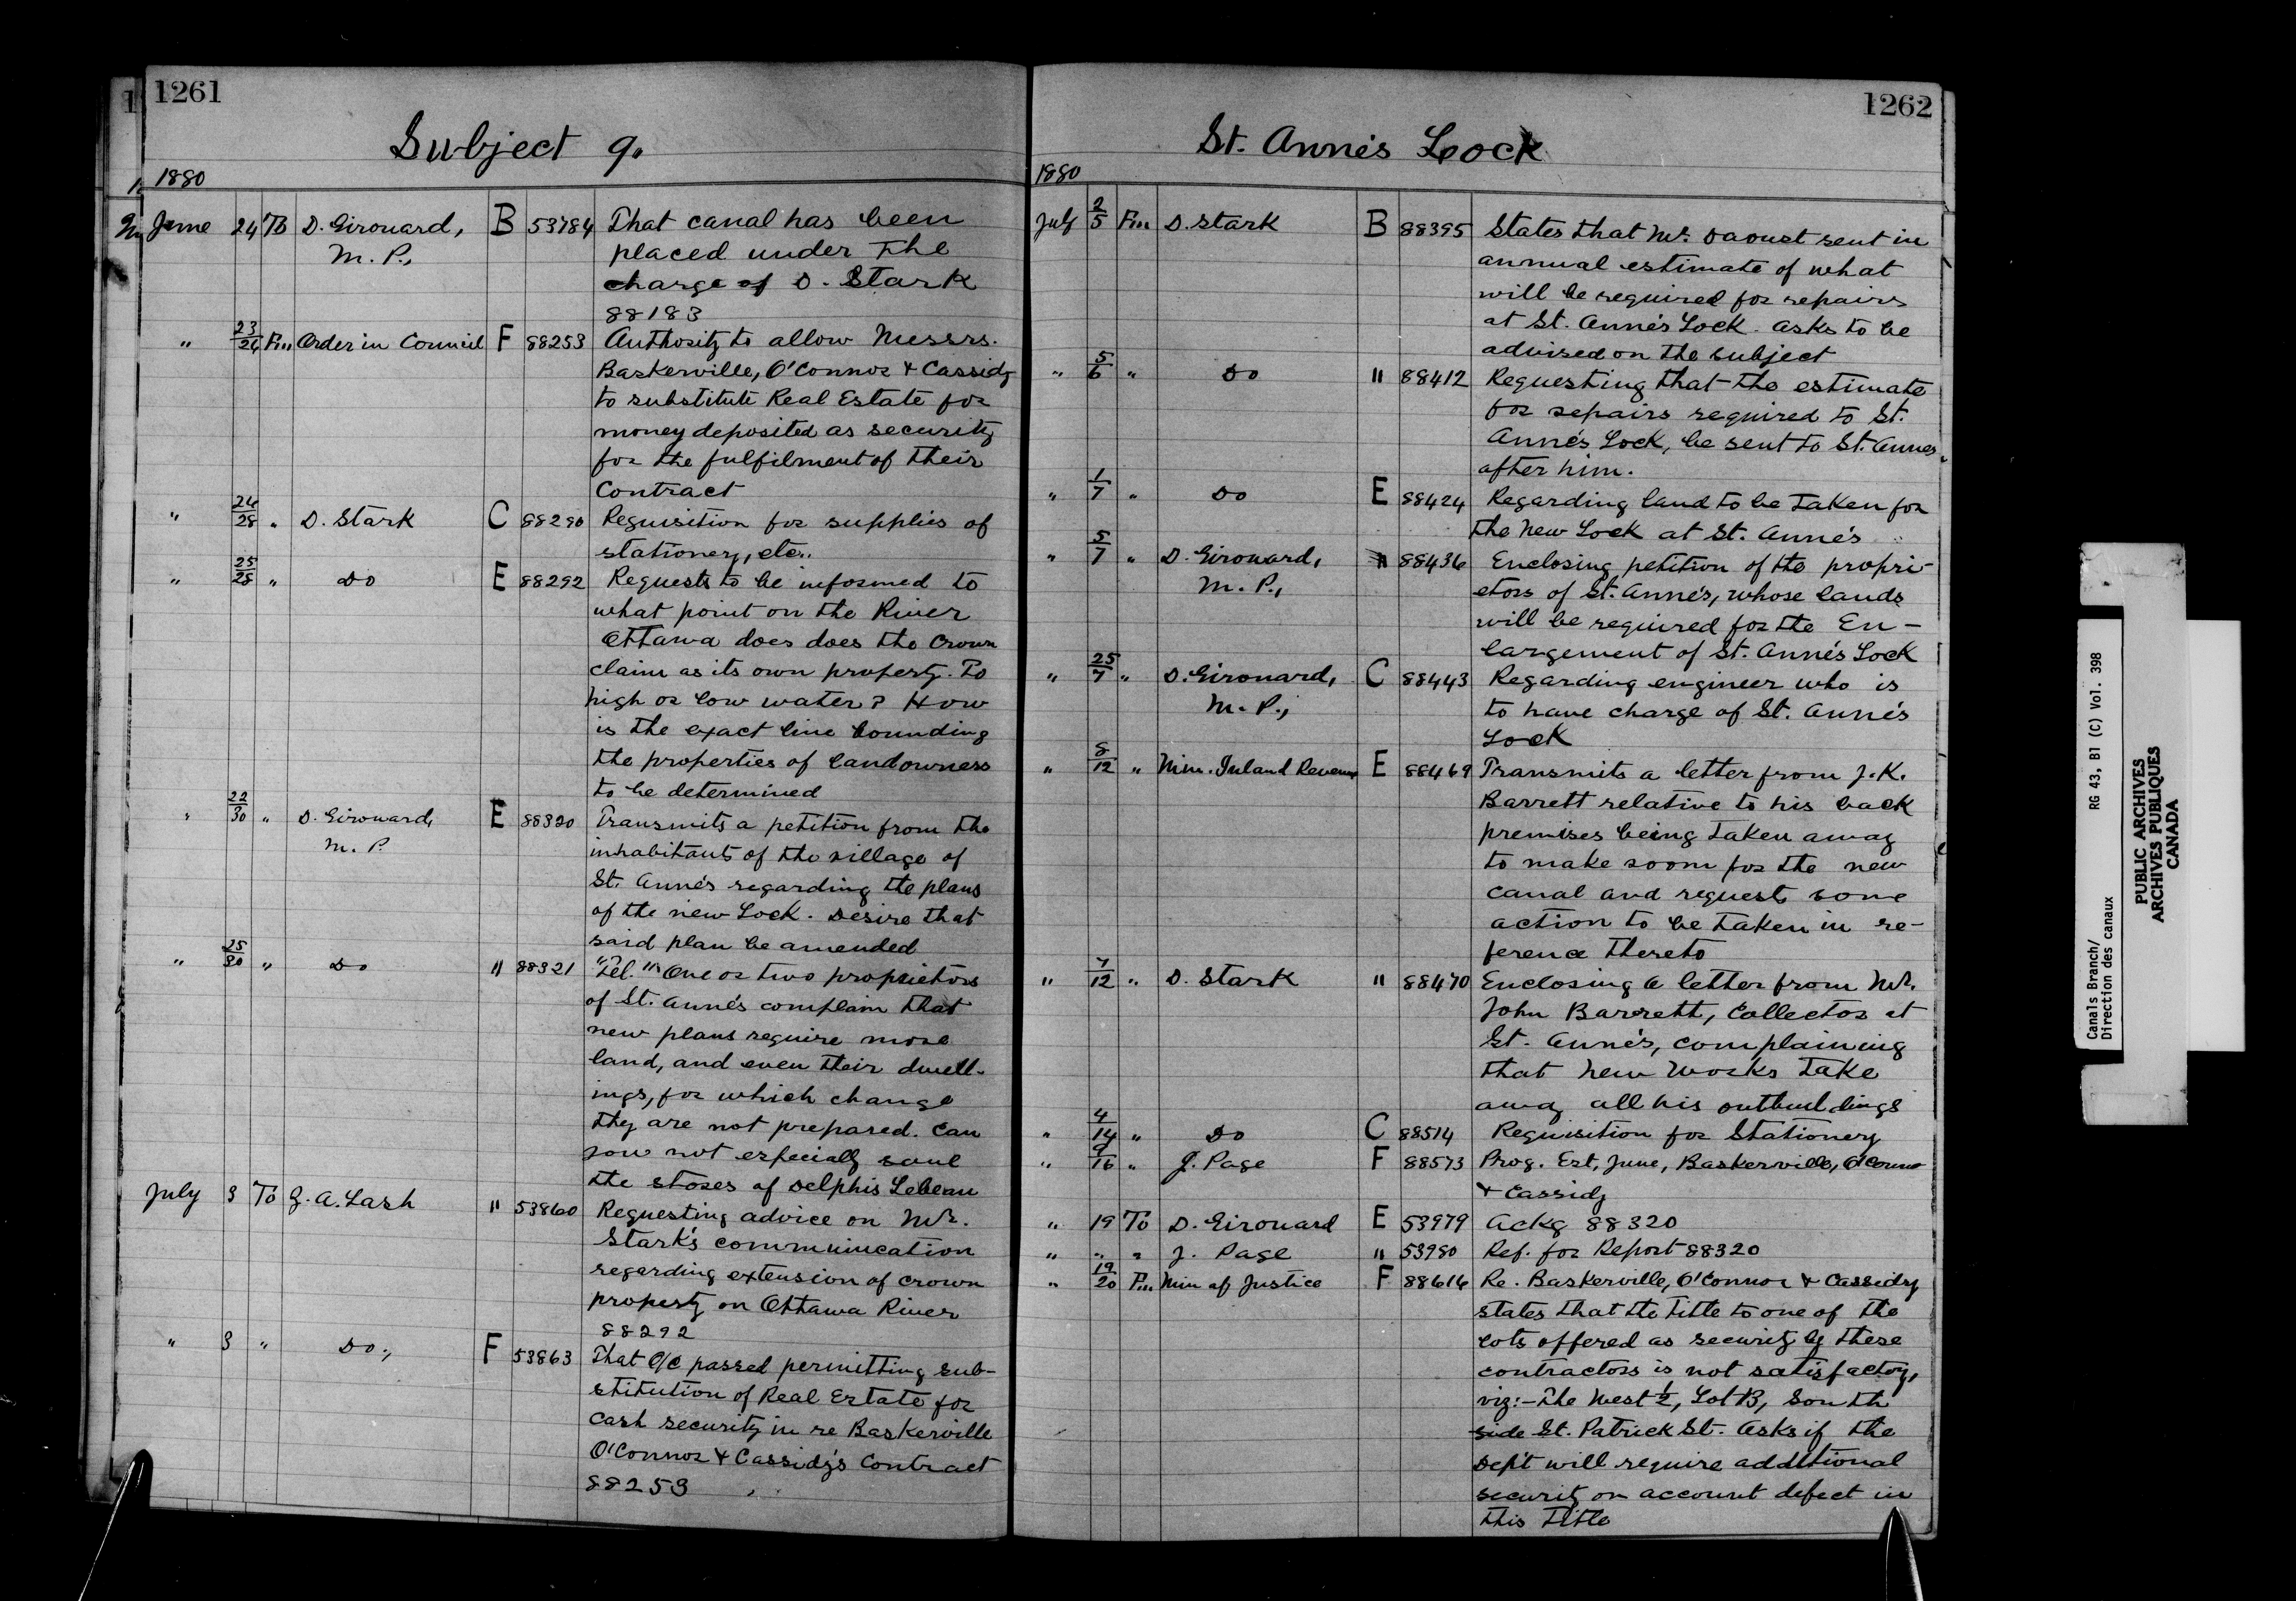 1261
Subject 9.
1880
June 24 To D. Girouard, B 53784 That canal has been
M. P., placed under the
charge of D. Stark
88183
" 23/24 Fm Order in Council F 88253 Authority to allow Messrs.
Baskerville, O'Connor & Cassidy
to substitute Real Estate for
money deposited as security
for the fulfilment of their
Contract
" 24/28 " D. Stark C 88290 Requisition for supplies of
stationery, etc.
" 25/28 " Do E 88292 Requests to be informed to
what point on the River
Ottawa does does the Crown
claim as its own property. To
high or low water? How
is the exact line bounding
the properties of landowners
to be determined
" 22/30 " D. Girouard, E 88320 Transmits a petition from the
M. P. inhabitants of the village of
St. Anne's regarding the plans
of the new Lock. Desire that
said plan be amended
" 25/30 " Do " 88321 "Tel." One or two proprietors
of St. Anne's complain that
new plans require more
land, and even their dwell-
ings, for which change
they are not prepared. Can
you not especially save
the stores of Delphis Lebeau
July 3 To Z. A. Lash " 53860 Requesting advice on Mr.
Stark's communication
regarding extension of crown
property on Ottawa River
88292
" 3 " Do., F 53863 That O/C passed permitting sub-
stitution of Real Estate for
cash security in re Baskerville
O'Connor & Cassidy's Contract
88253
1262
St. Anne's Lock
1880
July 2/5 Fm D. Stark B 88395 States that Mr. Daoust sent in
annual estimate of what
will be required for repairs
at St. Anne's Lock. Asks to be
advised on the subject
" 5/6 " Do " 88412 Requesting that the estimate
for repairs required to St.
Anne's Lock, be sent to St. Annes
after him.
" 1/7 " Do E 88424 Regarding land to be taken for
the New Lock at St. Anne's
" 5/7 " D. Girouard, " 88436 Enclosing petition of the propri-
M. P., etors of St. Anne's, whose lands
will be required for the En-
largement of St. Anne's Lock
" 25/7 " D. Girouard, C 88443 Regarding engineer who is
M. P., to have charge of St. Anne's
Lock
" 8/12 " Min. Inland Revenue E 88469 Transmits a letter from J. K.
Barrett relative to his back
premises being taken away
to make room for the new
canal and requests some
action to be taken in re-
ference thereto
" 7/12 " D. Stark " 88470 Enclosing a letter from Mr.
John Barrett, Collector at
St. Anne's, complaining
that new works take
away all his outbuildings
" 4/14 " Do C 88514 Requisition for Stationery
" 9/16 " J. Page F 88573 Prog. Est, June, Baskerville, O'Connor
& Cassidy
" 19 To D. Girouard E 53979 Ackg 88320
" " " J. Page " 53980 Ref. for Report 88320
" 19/20 Fm Min of Justice F 88614 Re. Baskerville, O'Connor & Cassidy
states that the Title to one of the
lots offered as security by these
contractors is not satisfactory,
viz:- The West ½, Lot B, South
side St. Patrick St. Asks if the
Dep't will require additional
security on account defect in
this Title
Canals Branch/
Direction des canaux
RG 43, B1 (C) Vol. 398
PUBLIC ARCHIVES
ARCHIVES PUBLIQUES
CANADA